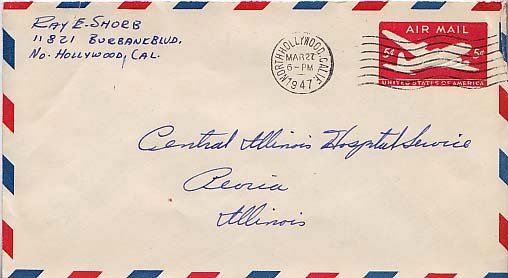 Ray E. Shobb
11821 Burbank Blvd.
No. Hollywood, Cal.
NORTH HOLLYWOOD, CALIF.
MAR 27
6-PM
1947
AIR MAIL
5¢ 5¢
UNITED STATES OF AMERICA
Central Illinois Hospital Service
Peoria
Illinois